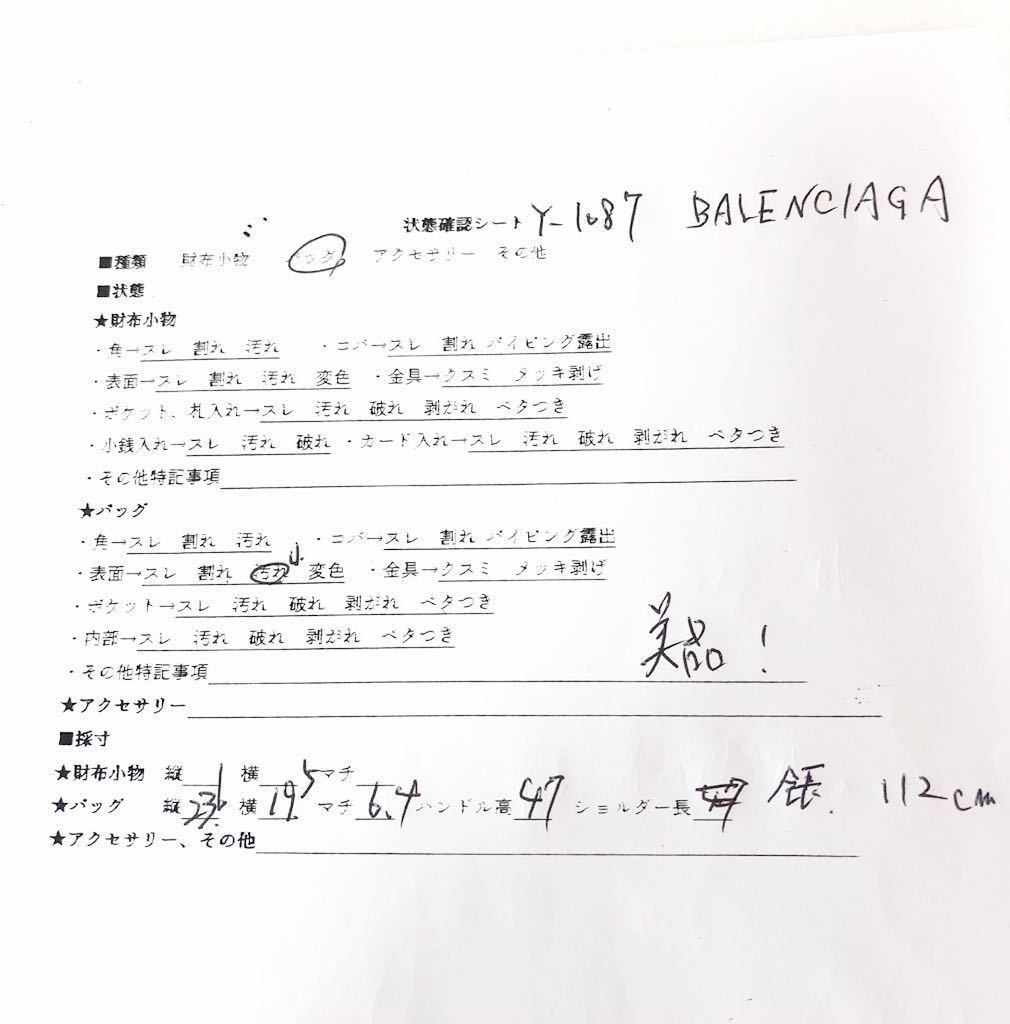 状態確認シート Y-1087 BALENCIAGA
■種類 財布小物 バッグ アクセサリー その他
■状態
★財布小物
・角→スレ 割れ 汚れ ・コバ→スレ 割れ パイピング露出
・表面→スレ 割れ 汚れ 変色 ・金具→クスミ メッキ剥げ
・ポケット、札入れ→スレ 汚れ 破れ 剥がれ ベタつき
・小銭入れ→スレ 汚れ 破れ ・カード入れ→スレ 汚れ 破れ 剥がれ ベタつき
・その他特記事項
★バッグ
・角→スレ 割れ 汚れ ・コバ→スレ 割れ パイピング露出
・表面→スレ 割れ 汚れ 小 変色 ・金具→クスミ メッキ剥げ
・ポケット→スレ 汚れ 破れ 剥がれ ベタつき
・内部→スレ 汚れ 破れ 剥がれ ベタつき
美品!
・その他特記事項
★アクセサリー
■採寸
★財布小物 縦 横 マチ
★バッグ 縦 横 19.5 マチ 6.4 ハンドル高 47 ショルダー長 全長 112cm
★アクセサリー、その他